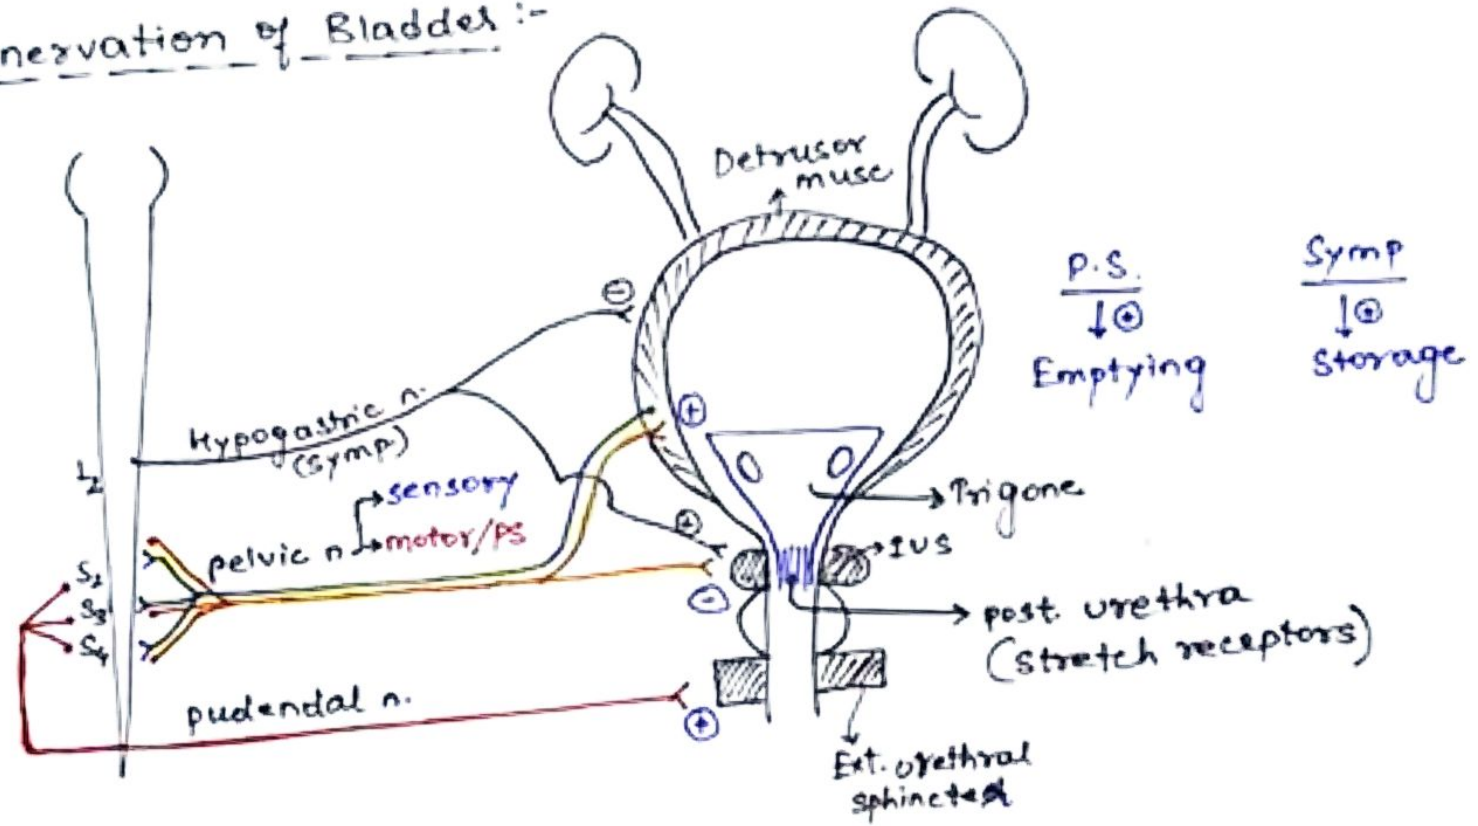 nervation of Bladder :-
Detrusor
musc
P.S.
↓⊕
Emptying
Symp
↓⊕
Storage
⊖
Hypogastric n.
(symp)
L2
⊕
sensory
pelvic n
motor/PS
⊕
Trigone
IUS
⊖
S2
S3
S4
post. urethra
(stretch receptors)
pudendal n.
⊕
Ext. urethral
sphincter